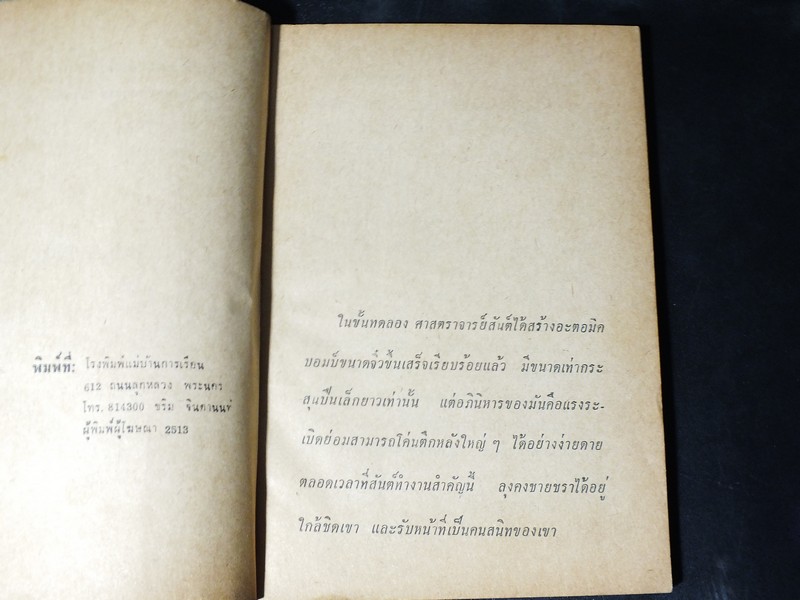 พิมพ์ที่: โรงพิมพ์แม่บ้านการเรียน
612 ถนนลูกหลวง พระนคร
โทร. 814300 ขริม จินดานนท์
ผู้พิมพ์ผู้โฆษณา 2513
ในขั้นทดลอง ศาสตราจารย์สันต์ได้สร้างอะตอมิค
บอมบ์ขนาดจิ๋วขึ้นเสร็จเรียบร้อยแล้ว มีขนาดเท่ากระ
สุนปืนเล็กยาวเท่านั้น แต่อภินิหารของมันคือแรงระ-
เบิดย่อมสามารถโค่นตึกหลังใหญ่ ๆ ได้อย่างง่ายดาย
ตลอดเวลาที่สันต์ทำงานสำคัญนี้ ลุงคงชายชราได้อยู่
ใกล้ชิดเขา และรับหน้าที่เป็นคนสนิทของเขา